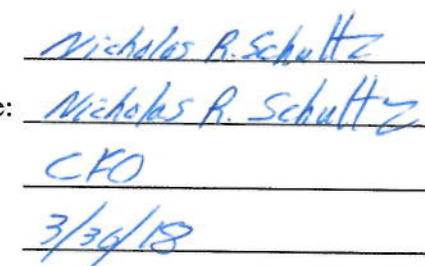 Nicholas R. Schultz
e: Nicholas R. Schultz
CFO
3/30/18